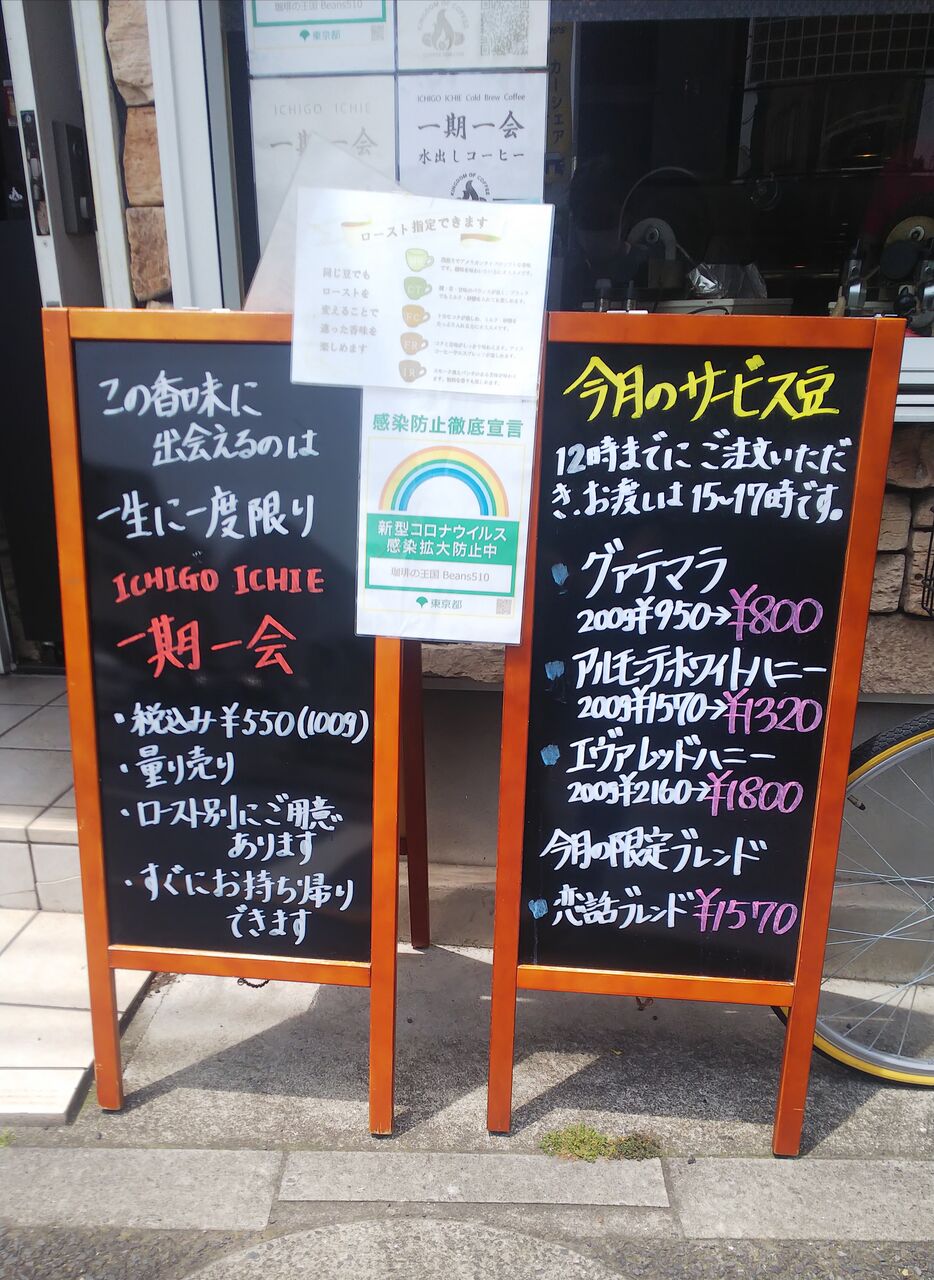 珈琲の王国 Beans510
東京都
KINGDOM OF COFFEE
ICHIGO ICHIE
一期一会
ICHIGO ICHIE Cold Brew Coffee
一期一会
水出しコーヒー
KINGDOM OF COFFEE
カーシェア
ロースト指定できます
同じ豆でも
ローストを
変えることで
違った香味を
楽しめます
CT
FC
FR
IR
感染防止徹底宣言
新型コロナウイルス
感染拡大防止中
珈琲の王国 Beans510
東京都
この香味に
出会えるのは
一生に一度限り
ICHIGO ICHIE
一期一会
・税込み¥550(100g)
・量り売り
・ロースト別にご用意
あります
・すぐにお持ち帰り
できます
今月のサービス豆
12時までにご注文いただ
き、お渡しは15~17時です。
グァテマラ
200g¥950→¥800
アルモンテホワイトハニー
200g¥1570→¥1320
エヴァレッドハニー
200g¥2160→¥1800
今月の限定ブレンド
恋話ブレンド¥1570